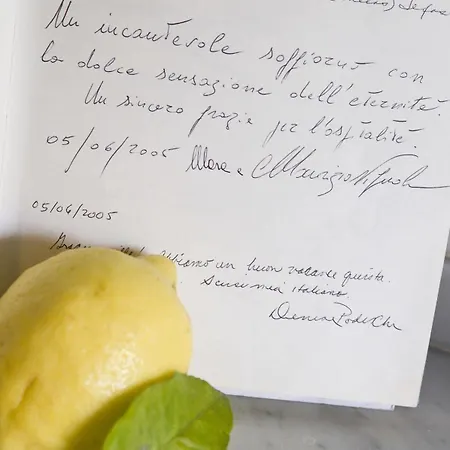 Un incantevole soggiorno con
la dolce sensazione dell'eternità.
Un sincero grazie per l'ospitalità.
05/06/2005 Mara e Maurizio
05/06/2005
un buon vacance questa.
Scusi mia italiano
Denise